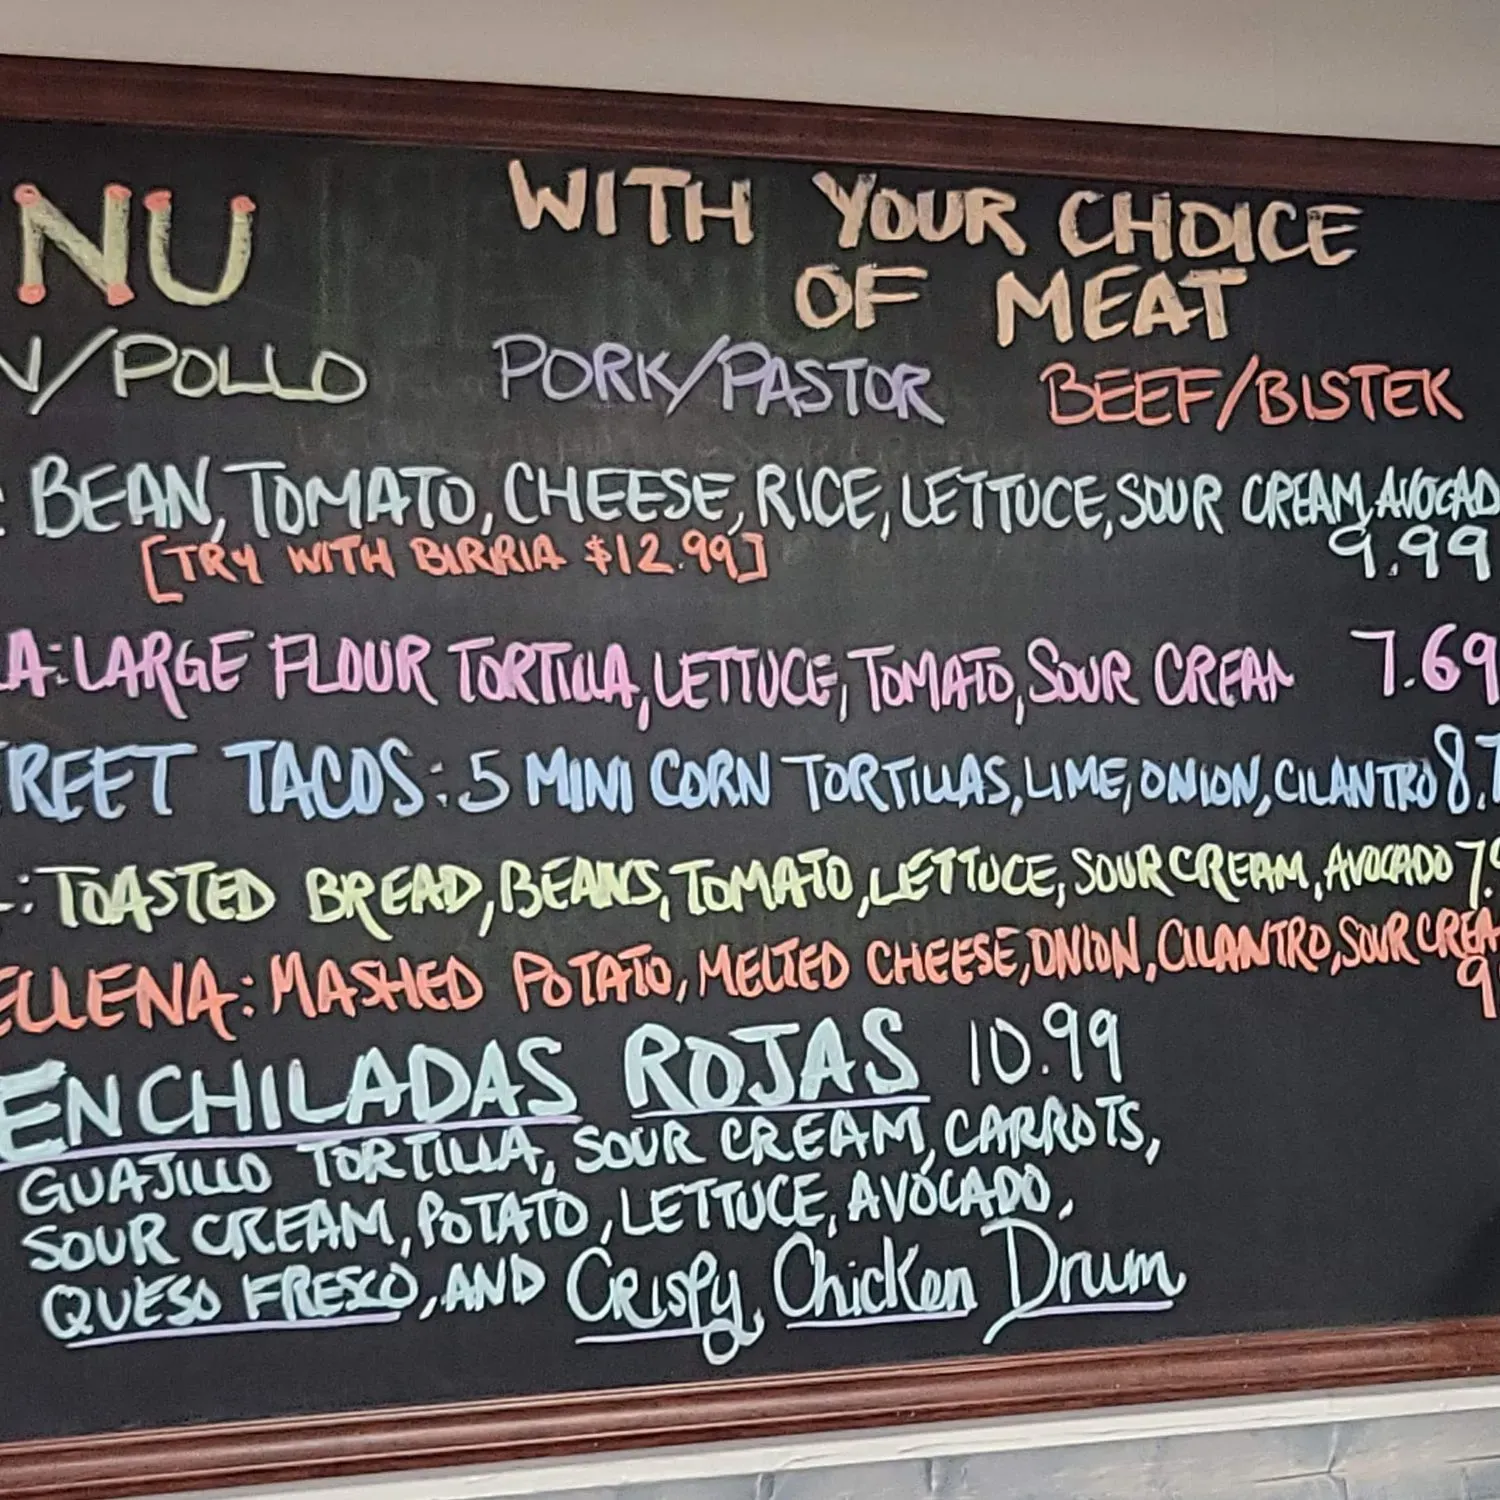 NU
WITH YOUR CHOICE
OF MEAT
N/POLLO PORK/PASTOR BEEF/BISTEK
: BEAN, TOMATO, CHEESE, RICE, LETTUCE, SOUR CREAM, AVOCAD
[TRY WITH BIRRIA $12.99] 9.99
LA: LARGE FLOUR TORTILLA, LETTUCE, TOMATO, SOUR CREAM 7.69
TREET TACOS: 5 MINI CORN TORTILLAS, LIME, ONION, CILANTRO 8.7
: TOASTED BREAD, BEANS, TOMATO, LETTUCE, SOUR CREAM, AVOCADO 7.9
ELLENA: MASHED POTATO, MELTED CHEESE, ONION, CILANTRO, SOUR CREA
9
ENCHILADAS ROJAS 10.99
GUAJILLO TORTILLA, SOUR CREAM, CARROTS,
SOUR CREAM, POTATO, LETTUCE, AVOCADO,
QUESO FRESCO, AND Crispy Chicken Drum